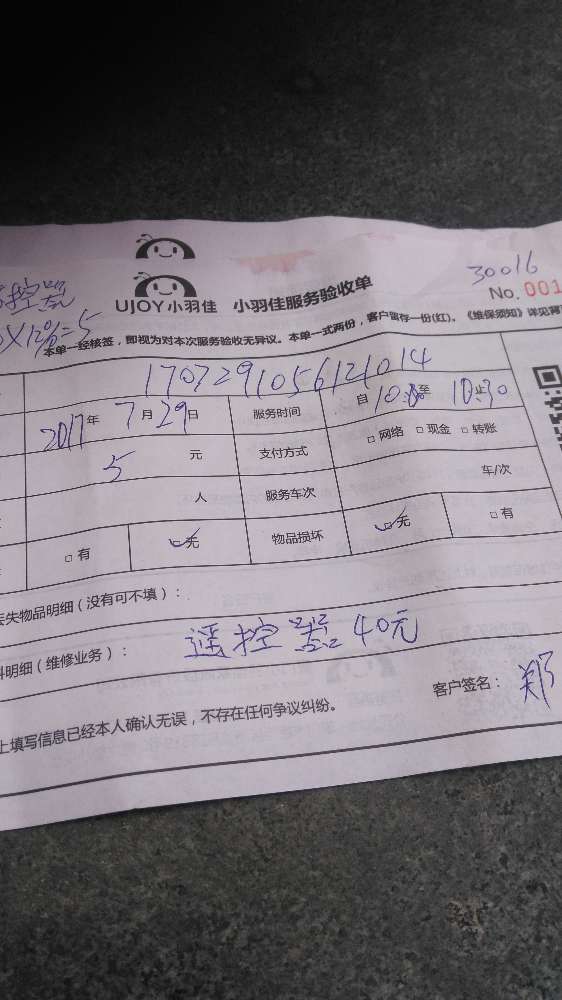 30016
控器
UJOY小羽佳 小羽佳服务验收单
No. 001
X12%=5
本单一经核签，即视为对本次服务验收无异议。本单一式两份，客户留存一份(红)。《维保须知》详见背
170729105612101​4
2017年 7月29日 服务时间 自 10:00至 10:30止
5 元 支付方式 □网络 □现金 □转账
人 服务车次 车/次
□有 无 物品损坏 无 □有
丢失物品明细（没有可不填）：
料明细（维修业务）： 遥控器40元
客户签名： 郑
上填写信息已经本人确认无误，不存在任何争议纠纷。